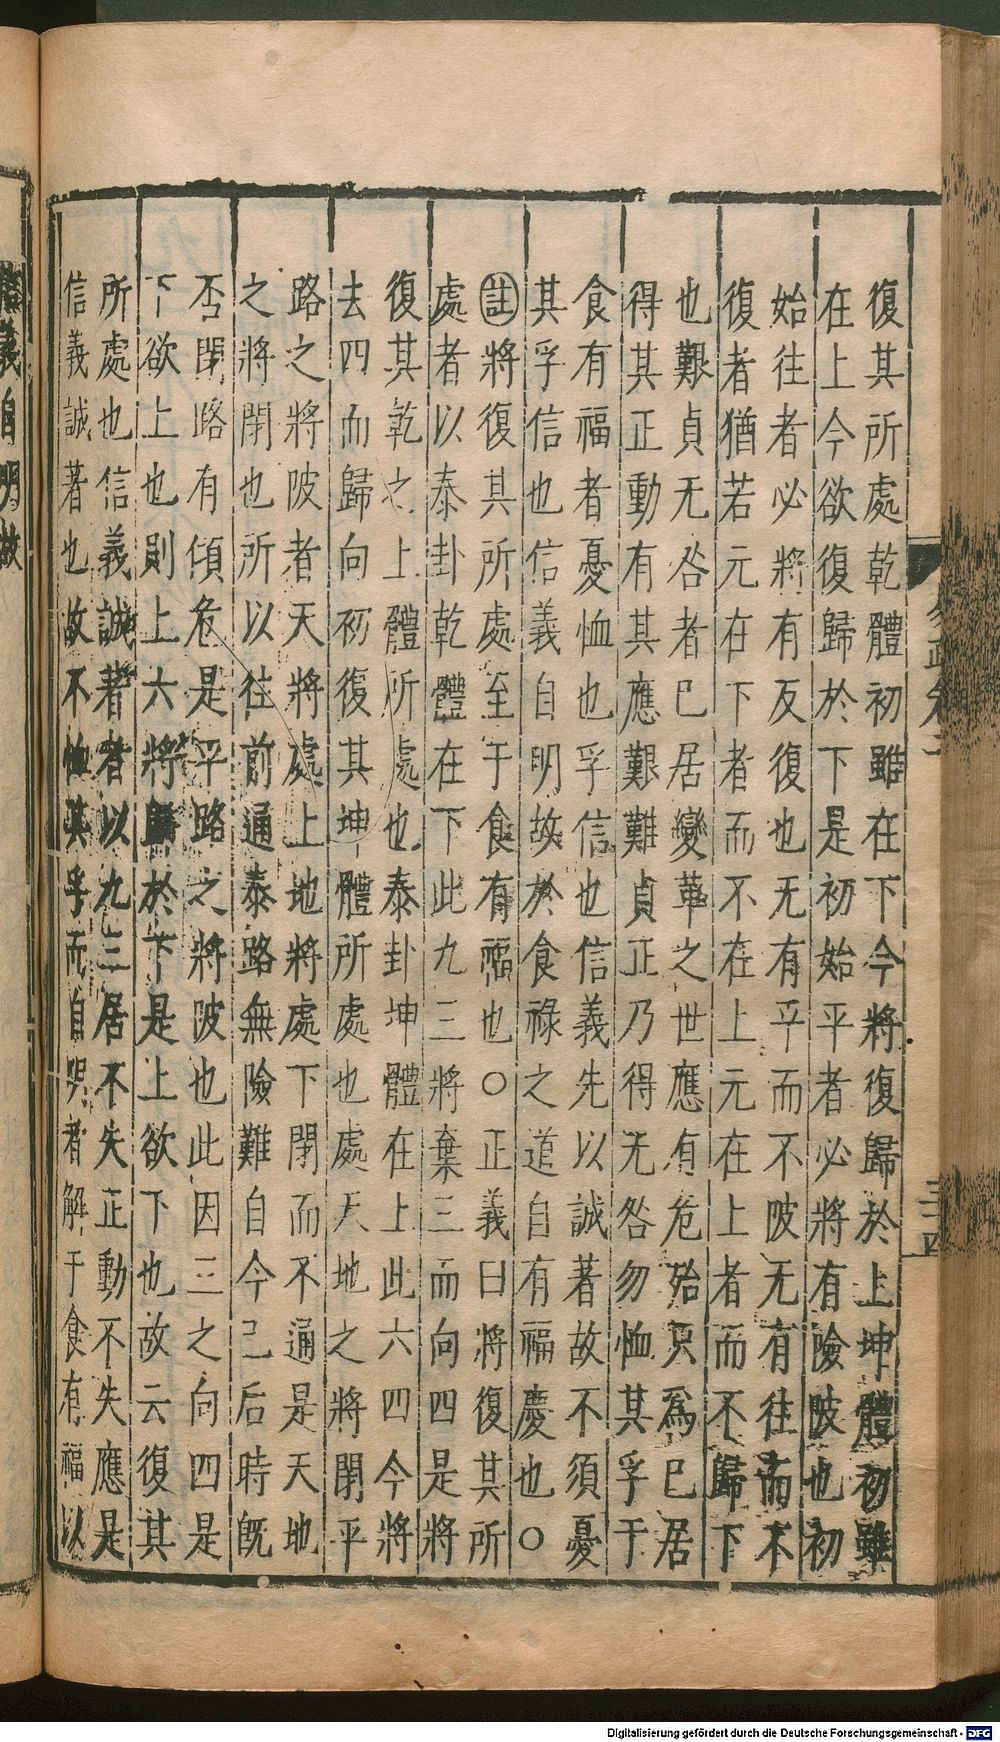 復其所處乾體初雖在下今將復歸於上坤體初雖
在上今欲復歸於下是初始平者必將有險陂也初
始往者必將有反復也无有平而不陂无有往而不
復者猶若元在下者而不在上元在上者而不歸下
也艱貞无咎者已居變革之世應有危殆只爲已居
得其正動有其應艱難貞正乃得无咎勿恤其孚于
食有福者憂恤也孚信也信義先以誠著故不須憂
其孚信也信義自明故於食祿之道自有福慶也○
註將復其所處至于食有福也○正義曰將復其所
處者以泰卦乾體在下此九三將棄三而向四是將
復其乾之上體所處也泰卦坤體在上此六四今將
去四而歸向初復其坤體所處也處天地之將閉平
路之將陂者天將處上地將處下閉而不通是天地
之將閉也所以往前通泰路無險難自今已后時旣
否閉路有傾危是平路之將陂也此因三之向四是
下欲上也則上六將歸於下是上欲下也故云復其
所處也信義誠著者以九三居不失正動不失應是
信義誠著也故不恤其孚而自明者解于食有福以
三十四
信義自明故
Digitalisierung gefördert durch die Deutsche Forschungsgemeinschaft - DFG